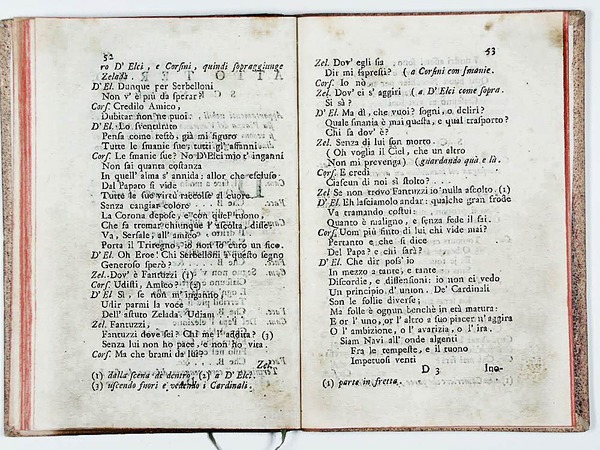 52
ro D' Elci, e Corsini, quindi sopraggiunge
Zelada.
D' El. Dunque per Serbelloni
Non v' è più da sperar?
Cors. Credilo Amico,
Dubitar non ne puoi.
D' El. Lo sventurato
Pensa come restò, già mi figuro
Tutte le smanie sue, tutti gl' affanni.
Cors. Le smanie sue? No D'Elci mio t' inganni
Non sai quanta costanza
In quell' alma s' annida: allor che escluso
Dal Papato si vide
Tutte le sue virtù raccolse al cuore.
Senza cangiar colore
La Corona depose, e con quel tuono,
Che fa tremar chiunque l' ascolta, disse.
Va, Sersale, all' amico
Porta il Triregno, io non lo curo un fico.
D' El. Oh Eroe! Chi Serbelloni a questo segno
Generoso sperò?
Zel. Dov' è Fantuzzi (1)
Cors. Udisti, Amico? (2)
D' El Sì, se non m' inganno,
Udir parmi la voce
Dell' astuto Zelada. Udiam
Zel. Fantuzzi,
Fantuzzi dove sei? Chi me l' addita? (3)
Senza lui non ho pace, e non ho vita.
Cors. Ma che brami da lui?
Zel.
(1) dalla scena di dentro. (2) a D' Elci.
(3) uscendo fuori e vedendo i Cardinali.
53
Zel. Dov' egli sia
Dir mi sapresti? ( a Corsini con smanie.
Cors. Io nò
Zel. Dov' ei s' aggiri ( a D' Elci come sopra.
Si sà?
D' El. Ma dì, che vuoi? sogni, o deliri?
Quale smania è mai questa, e qual trasporto?
Chi sa dov' è?
Zel. Senza di lui son morto
( Oh voglia il Ciel, che un altro
Non mi prevenga) (guardando quà e là.
Cors. E credi
Ciascun di noi sì stolto?
Zel Se non trovo Fantuzzi io nulla ascolto. (1)
D' El. Eh lasciamolo andar: qualche gran frode
Va tramando costui:
Quanto è maligno, e senza fede il sai.
Cors. Uom più finto di lui chi vide mai?
Pertanto e che si dice
Del Papa? e chi sarà?
D' El. Che dir poss' io
In mezzo a tante, e tante
Discordie, e dissensioni: io non ci vedo
Un principio d' union. De' Cardinali
Son le follie diverse;
Ma folle è ognun benchè in età matura:
E or l' uno, or l' altro a suo piacer n' aggira
O l' ambizione, o l' avarizia, o l' ira.
Siam Navi all' onde algenti
Fra le tempeste, e il tuono
Impetuosi venti
D 3
(1) parte in fretta.